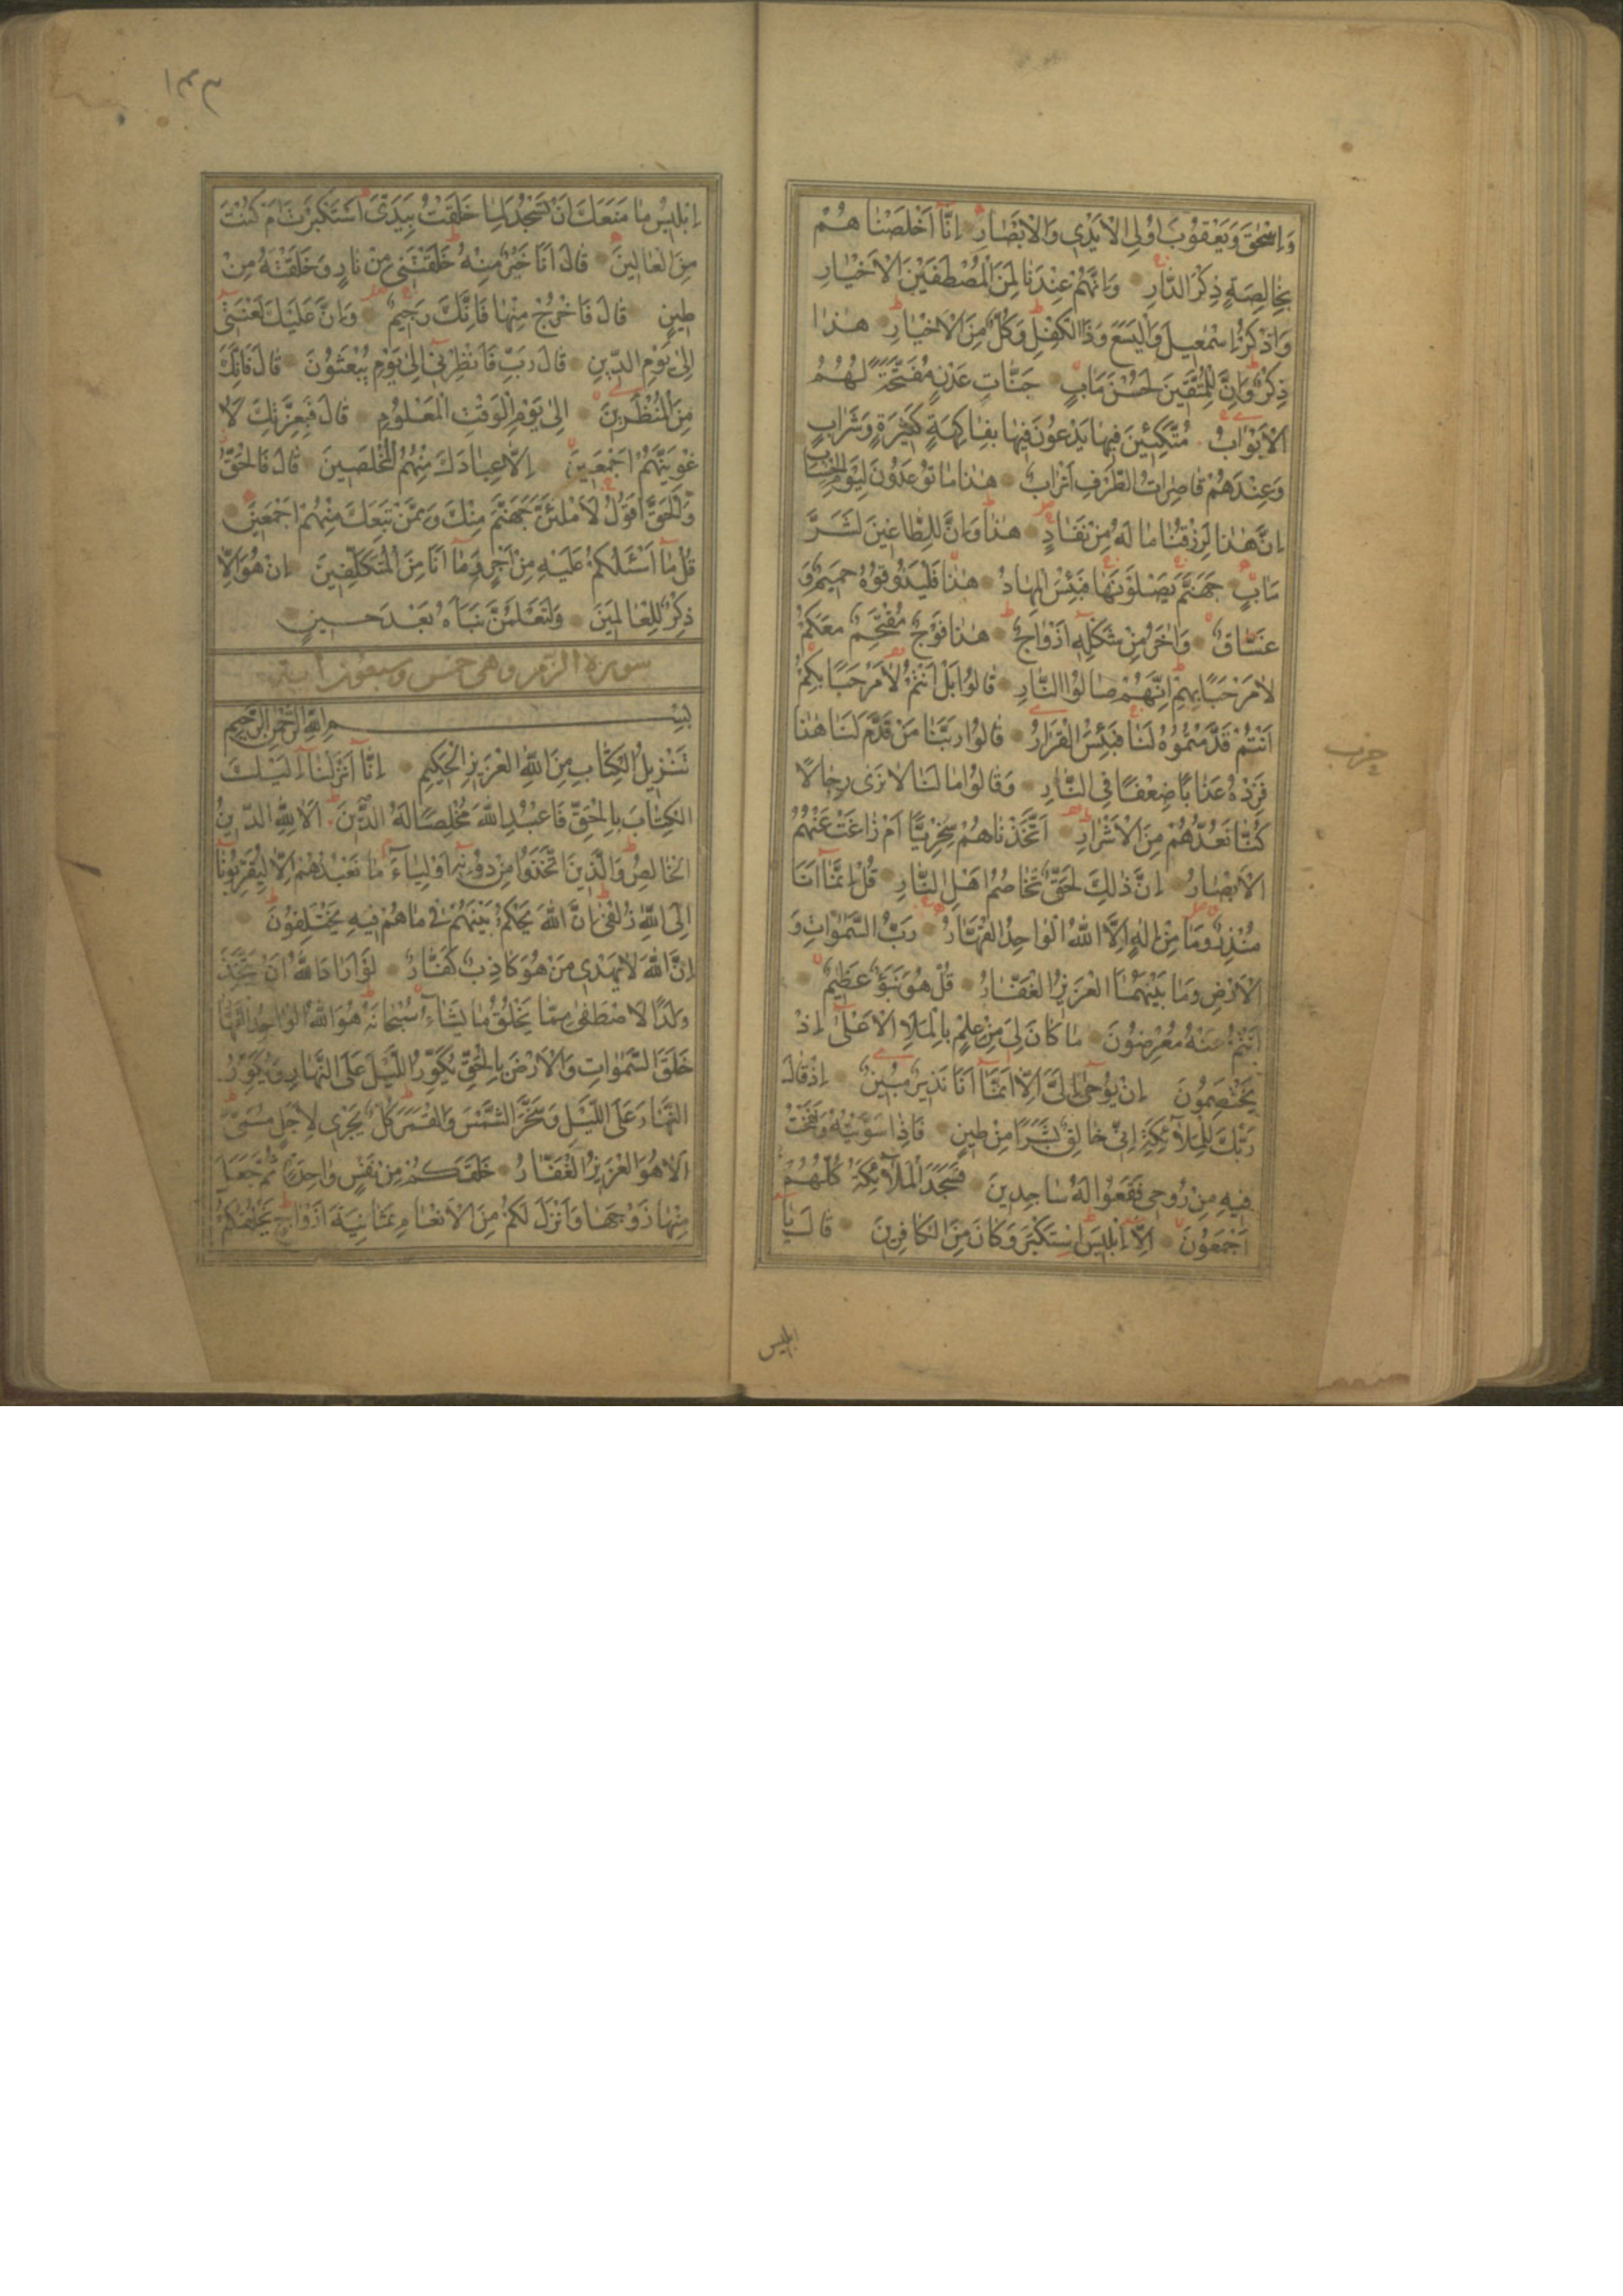 وَاِسْحٰقَ وَيَعْقُوبَ اُولِى الْاَيْدِى وَالْاَبْصَارِ اِنَّا اَخْلَصْنَا هُمْ
بِخَالِصَةٍ ذِكْرَ الدَّارِ وَاِنَّهُمْ عِنْدَنَا لَمِنَ الْمُصْطَفَيْنَ الْاَخْيَارِ
وَاذْكُرْ اِسْمٰعِيلَ وَالْيَسَعَ وَذَا الْكِفْلِ وَكُلٌّ مِنَ الْاَخْيَارِ هٰذَا
ذِكْرٌ وَاِنَّ لِلْمُتَّقِينَ لَحُسْنَ مَاٰبٍ جَنَّاتِ عَدْنٍ مُفَتَّحَةً لَهُمُ
الْاَبْوَابُ مُتَّكِئِينَ فِيهَا يَدْعُونَ فِيهَا بِفَاكِهَةٍ كَثِيرَةٍ وَشَرَابٍ
وَعِنْدَهُمْ قَاصِرَاتُ الطَّرْفِ اَتْرَابٌ هٰذَا مَا تُوعَدُونَ لِيَوْمِ الْحِسَابِ
اِنَّ هٰذَا لَرِزْقُنَا مَا لَهُ مِنْ نَفَادٍ هٰذَا وَاِنَّ لِلطَّاغِينَ لَشَرَّ
مَاٰبٍ جَهَنَّمَ يَصْلَوْنَهَا فَبِئْسَ الْمِهَادُ هٰذَا فَلْيَذُوقُوهُ حَمِيمٌ وَ
غَسَّاقٌ وَاٰخَرُ مِنْ شَكْلِهِ اَزْوَاجٌ هٰذَا فَوْجٌ مُقْتَحِمٌ مَعَكُمْ
لَا مَرْحَبًا بِهِمْ اِنَّهُمْ صَالُوا النَّارِ قَالُوا بَلْ اَنْتُمْ لَا مَرْحَبًا بِكُمْ
اَنْتُمْ قَدَّمْتُمُوهُ لَنَا فَبِئْسَ الْقَرَارُ قَالُوا رَبَّنَا مَنْ قَدَّمَ لَنَا هٰذَا
فَزِدْهُ عَذَابًا ضِعْفًا فِى النَّارِ وَقَالُوا مَا لَنَا لَا نَرٰى رِجَالًا
كُنَّا نَعُدُّهُمْ مِنَ الْاَشْرَارِ اَتَّخَذْنَاهُمْ سِخْرِيًّا اَمْ زَاغَتْ عَنْهُمُ
الْاَبْصَارُ اِنَّ ذٰلِكَ لَحَقٌّ تَخَاصُمُ اَهْلِ النَّارِ قُلْ اِنَّمَا اَنَا
مُنْذِرٌ وَمَا مِنْ اِلٰهٍ اِلَّا اللهُ الْوَاحِدُ الْقَهَّارُ رَبُّ السَّمٰوَاتِ وَ
الْاَرْضِ وَمَا بَيْنَهُمَا الْعَزِيزُ الْغَفَّارُ قُلْ هُوَ نَبَؤٌ عَظِيمٌ
اَنْتُمْ عَنْهُ مُعْرِضُونَ مَا كَانَ لِىَ مِنْ عِلْمٍ بِالْمَلَاِ الْاَعْلٰى اِذْ
يَخْتَصِمُونَ اِنْ يُوحٰى اِلَىَّ اِلَّا اَنَّمَا اَنَا نَذِيرٌ مُبِينٌ اِذْ قَالَ
رَبُّكَ لِلْمَلٰٓئِكَةِ اِنِّى خَالِقٌ بَشَرًا مِنْ طِينٍ فَاِذَا سَوَّيْتُهُ وَنَفَخْتُ
فِيهِ مِنْ رُوحِى فَقَعُوا لَهُ سَاجِدِينَ فَسَجَدَ الْمَلَآئِكَةُ كُلُّهُمْ
اَجْمَعُونَ اِلَّا اِبْلِيسَ اسْتَكْبَرَ وَكَانَ مِنَ الْكَافِرِينَ قَالَ يَا
ابليس
حزب
١٣٣
اِبْلِيسُ مَا مَنَعَكَ اَنْ تَسْجُدَ لِمَا خَلَقْتُ بِيَدَىَّ اَسْتَكْبَرْتَ اَمْ كُنْتَ
مِنَ الْعَالِينَ قَالَ اَنَا خَيْرٌ مِنْهُ خَلَقْتَنِى مِنْ نَارٍ وَخَلَقْتَهُ مِنْ
طِينٍ قَالَ فَاخْرُجْ مِنْهَا فَاِنَّكَ رَجِيمٌ وَاِنَّ عَلَيْكَ لَعْنَتِى
اِلٰى يَوْمِ الدِّينِ قَالَ رَبِّ فَاَنْظِرْنِى اِلٰى يَوْمِ يُبْعَثُونَ قَالَ فَاِنَّكَ
مِنَ الْمُنْظَرِينَ اِلٰى يَوْمِ الْوَقْتِ الْمَعْلُومِ قَالَ فَبِعِزَّتِكَ لَاُ
غْوِيَنَّهُمْ اَجْمَعِينَ اِلَّا عِبَادَكَ مِنْهُمُ الْمُخْلَصِينَ قَالَ فَالْحَقُّ
وَالْحَقَّ اَقُولُ لَاَمْلَئَنَّ جَهَنَّمَ مِنْكَ وَمِمَّنْ تَبِعَكَ مِنْهُمْ اَجْمَعِينَ
قُلْ مَا اَسْئَلُكُمْ عَلَيْهِ مِنْ اَجْرٍ وَمَا اَنَا مِنَ الْمُتَكَلِّفِينَ اِنْ هُوَ اِلَّا
ذِكْرٌ لِلْعَالَمِينَ وَلَتَعْلَمُنَّ نَبَاَهُ بَعْدَ حِينٍ
سورة الزمر وهى خمس وسبعون آية
بِسْمِ اللهِ الرَّحْمٰنِ الرَّحِيمِ
تَنْزِيلُ الْكِتَابِ مِنَ اللهِ الْعَزِيزِ الْحَكِيمِ اِنَّا اَنْزَلْنَا اِلَيْكَ
الْكِتَابَ بِالْحَقِّ فَاعْبُدِ اللهَ مُخْلِصًا لَهُ الدِّينَ اَلَا لِلّٰهِ الدِّينُ
الْخَالِصُ وَالَّذِينَ اتَّخَذُوا مِنْ دُونِهِ اَوْلِيَاءَ مَا نَعْبُدُهُمْ اِلَّا لِيُقَرِّبُونَا
اِلَى اللهِ زُلْفٰى اِنَّ اللهَ يَحْكُمُ بَيْنَهُمْ فِى مَا هُمْ فِيهِ يَخْتَلِفُونَ
اِنَّ اللهَ لَا يَهْدِى مَنْ هُوَ كَاذِبٌ كَفَّارٌ لَوْ اَرَادَ اللهُ اَنْ يَتَّخِذَ
وَلَدًا لَاصْطَفٰى مِمَّا يَخْلُقُ مَا يَشَاءُ سُبْحَانَهُ هُوَ اللهُ الْوَاحِدُ الْقَهَّارُ
خَلَقَ السَّمٰوَاتِ وَالْاَرْضَ بِالْحَقِّ يُكَوِّرُ اللَّيْلَ عَلَى النَّهَارِ وَيُكَوِّرُ
النَّهَارَ عَلَى اللَّيْلِ وَسَخَّرَ الشَّمْسَ وَالْقَمَرَ كُلٌّ يَجْرِى لِاَجَلٍ مُسَمًّى
اَلَا هُوَ الْعَزِيزُ الْغَفَّارُ خَلَقَكُمْ مِنْ نَفْسٍ وَاحِدَةٍ ثُمَّ جَعَلَ
مِنْهَا زَوْجَهَا وَاَنْزَلَ لَكُمْ مِنَ الْاَنْعَامِ ثَمَانِيَةَ اَزْوَاجٍ يَخْلُقُكُمْ